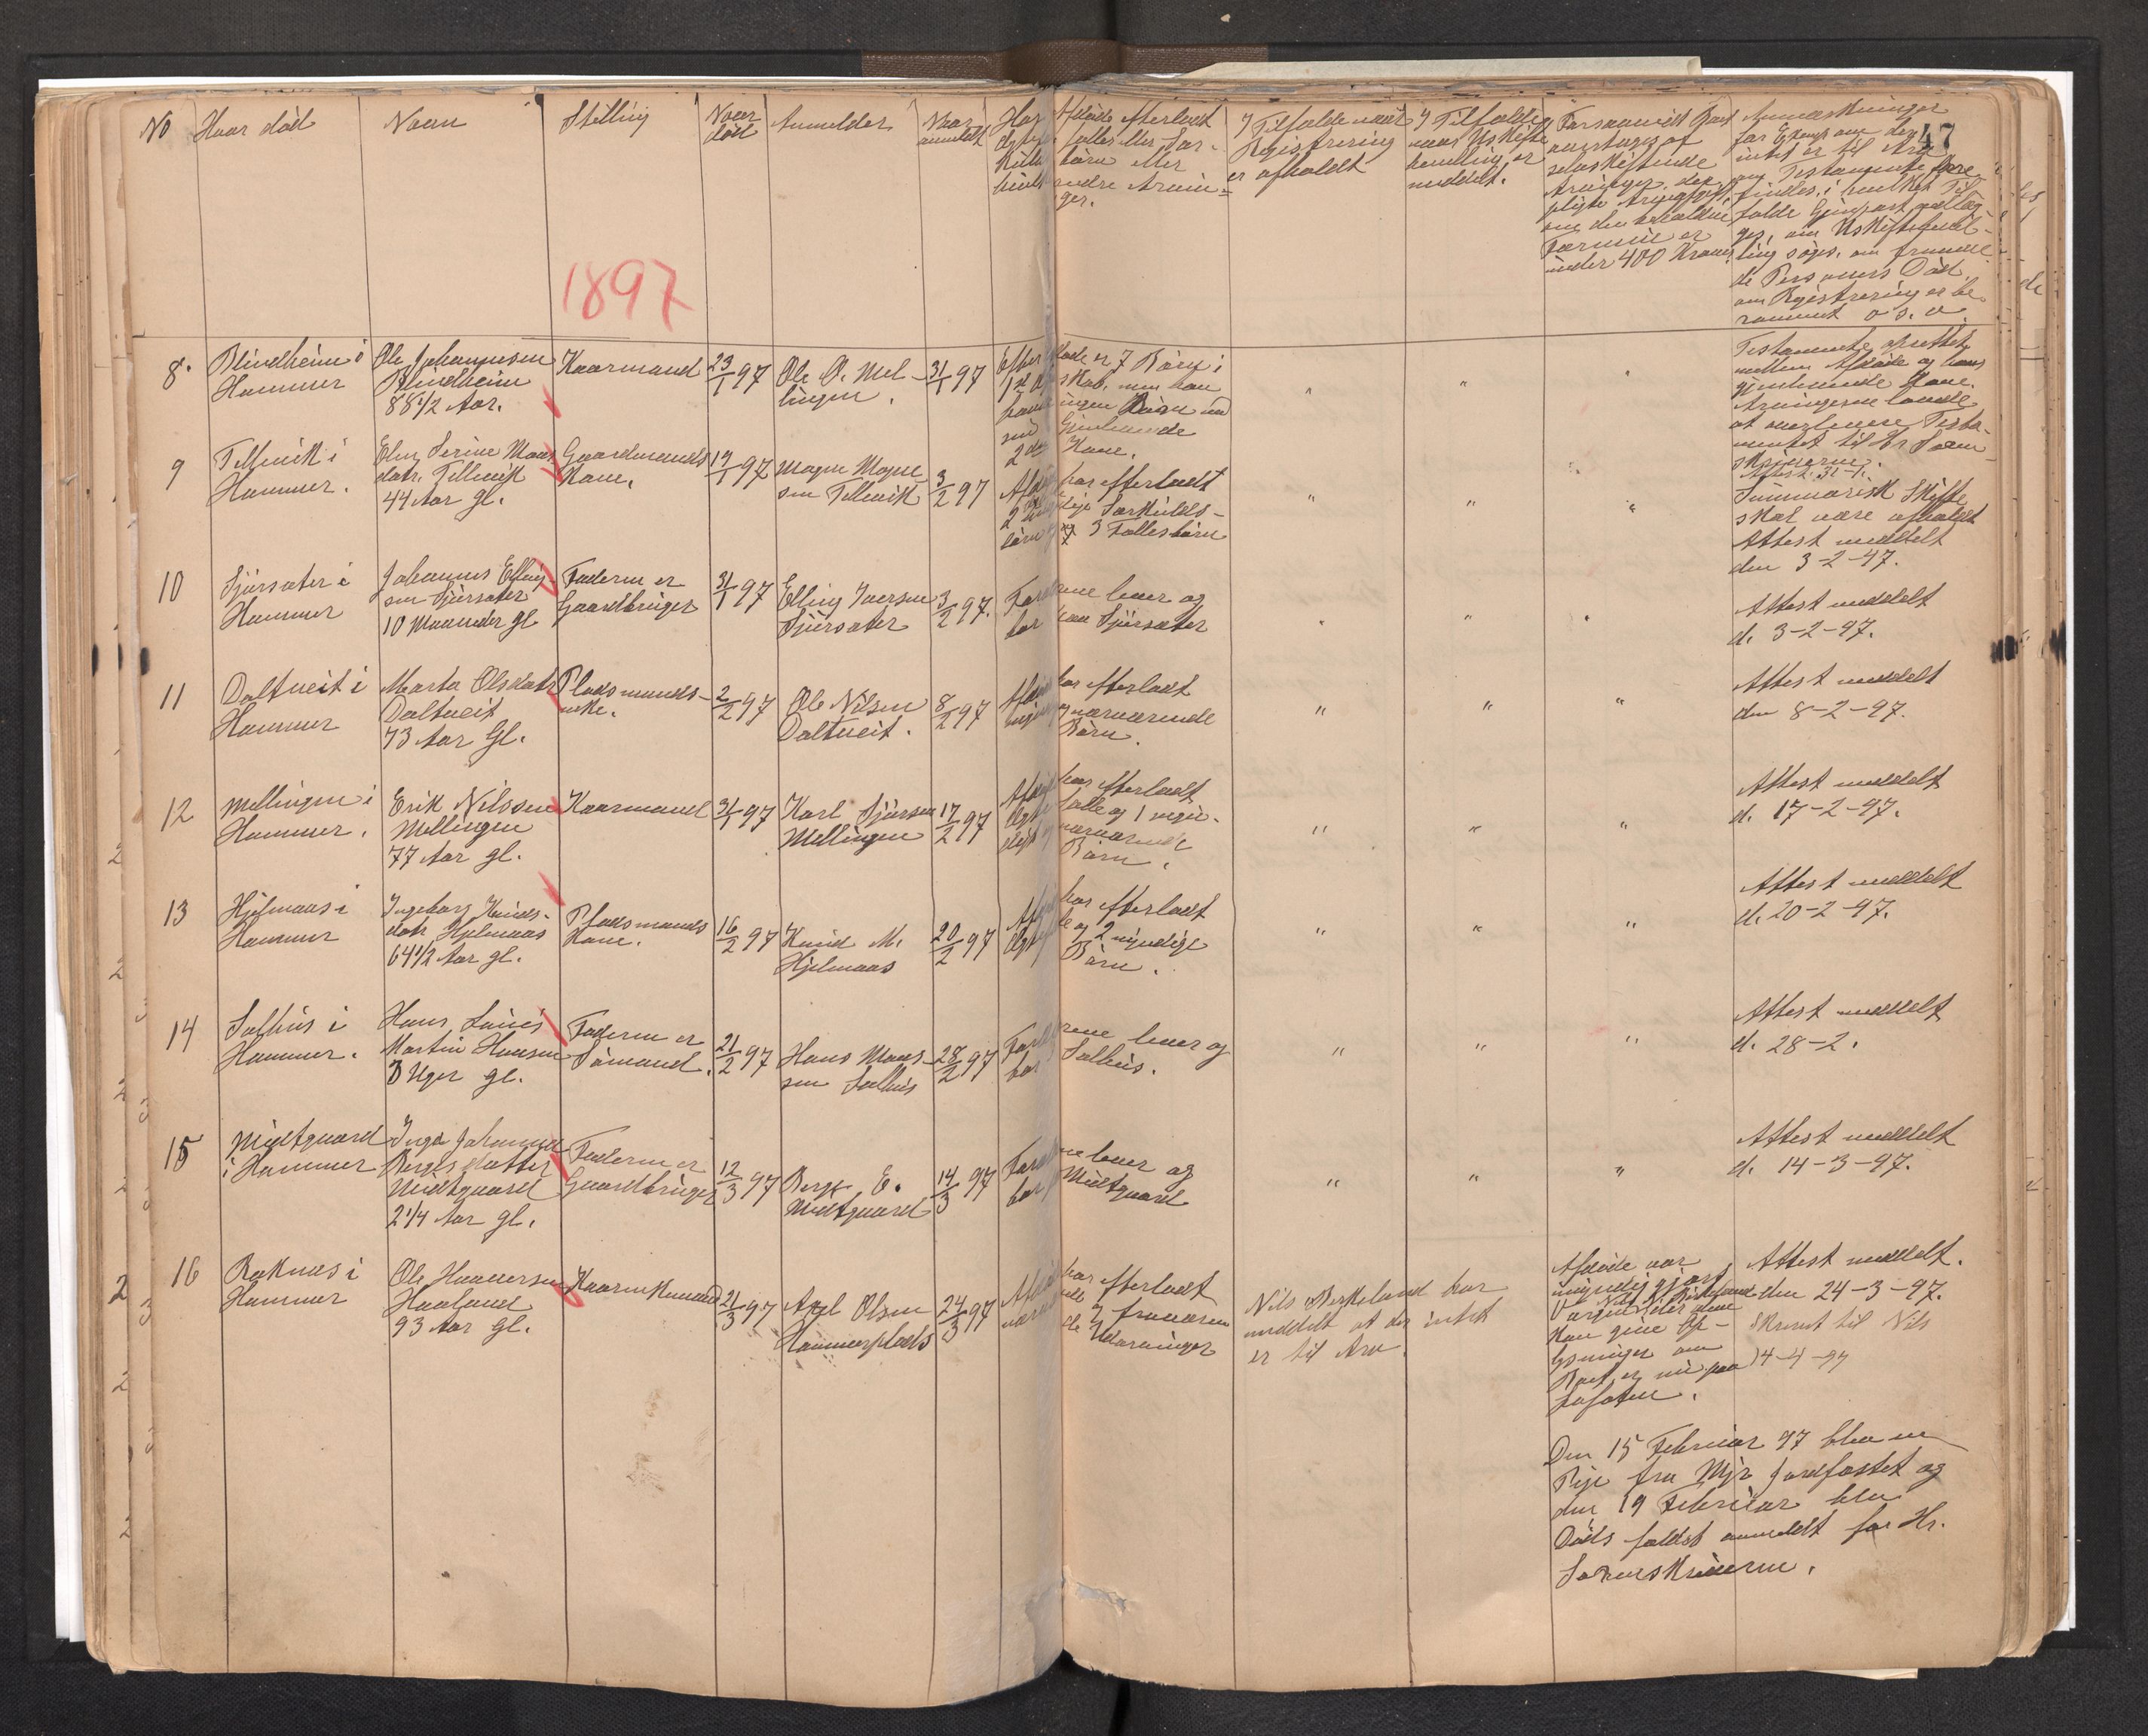 47
No
Hvor död
Navn
Stilling
Naar
död
Anmelder
Naar
anmeldt
Har Afdöde efterladt
börn eller
andre Arvin-
ger.
I Tilfælde naar
Registrering
er afholdt
I Tilfælde
naar Uskifte
bevilling er
meddelt.
Forsaavidt Boet
overtages af
selvskiftende
Arvinger, der
under 400 Kroner
Anmærkninger
for Exemp. om der
intet er til Arv
om Testamente
findes, i hvilket Til-
fælde Gjenpart vedlæg-
ges, om Uskiftebevil-
ling söges, om fraværen-
de Personers Död,
om Registrering er be-
rammet o. s. v.
1897
8.
Blindheim i
Hammer
Ole Johannesen
Blindheim
88 1/2 Aar.
Kaarmand
23/1 97
Ole O. Mel-
lingen.
31/1 97
Efterlod er 7 Börn i
1st Ægteskab, men han
havde ingen Börn med
sin Gjenlevende
2den Kone.
"
"
"
Testamente oprettet
mellem Afdöde og hans
gjenlevende Kone.
Arvingerne lovede
at overlevere Testa-
mentet til Hr Soren-
skriveren.
Attest 31-1.
9
Tellevik i
Hammer.
Elen Serine Mons
datr. Tellevik
44 Aar gl.
Gaardmands
Kone.
19/1 97
Magne Magne
sen Tellevik
3/2 97
Afdöde har efterladt
2 Særkulds-
börn og 3 Fællesbörn
"
"
"
Summarisk Skifte
skal være afholdt
Attest meddelt
den 3-2-97.
10
Sjursæter i
Hammer
Johannes Elling-
sen Sjursæter
10 Maaneder gl
Faderen er
Gaardbruger
31/1 97
Elling Iversen
Sjursæter
3/2 97.
Forældrene lever og
bor paa Sjursæter
"
"
"
Attest meddelt
d. 3-2-97.
11
Daltveit i
Hammer
Marta Olsdatr
Daltveit
73 Aar Gl.
Pladsmands-
enke.
2/2 97
Ole Nilsen
Daltveit.
8/2 97
Afdöde har efterladt
myndige nærværende
Börn.
"
"
"
Attest meddelt
den 8-2-97.
12
Mellingen i
Hammer.
Erik Nilssen
Mellingen
77 Aar gl.
Kaarmand
31/1 97
Karl Sjursen
Mellingen
17/2 97
Afdöde har efterladt
Ægtefælle og 1 myn-
digt nærværende
Börn.
"
"
"
Attest meddelt
d. 17-2-97.
13
Hjelmaas i
Hammer
Ingeborg Knuds-
datr Hjelmaas
64 1/2 Aar gl.
Pladsmands
Kone.
16/2 97
Knud M.
Hjelmaas
20/2 97
Afdöde har efterladt
Ægtefælle og 2 myndige
Börn.
"
"
"
Attest meddelt
d. 20-2-97.
14
Salhus i
Hammer.
Hans Louis
Martin Hansen
8 Uger gl.
Faderen er
Sömand.
21/2 97
Hans Mons-
sen Salhus
28/2 97
Forældrene lever og
bor Salhus.
"
"
"
Attest meddelt
d. 28-2.
15
Midtgaard
i Hammer
Inga Johanna
Bergesdatter
Midtgaard
2 1/4 Aar gl.
Faderen er
Gaardbruger
12/3 97
Berge E.
Midtgaard
14/3 97
Forældrene lever og
bor Midtgaard
"
"
"
Attest meddelt
d. 14-3-97.
16
Roknes i
Hammer
Ole Haaversen
Haaland
93 Aar gl.
21/3 97
Axel Olsen
Hammerplads
24/3 97
Afdöde har efterladt
fraværen
de Udarvinger
Nils Birkeland har
meddelt at der intet
er til Arv.
Afdöde var
umyndiggjort
Nils N. Birkeland
kan give Op-
lysninger om
Boet, er nu paa
Lofoten.
Attest meddelt.
den 24-3-97.
Skrevet til Nils
14-4-97
Den 15 Februar 97 blev en
Pige fra Mjö Jordfæstet og
den 19 Februar blev
Döds faldet anmeldt for Hr.
Sorenskriveren.